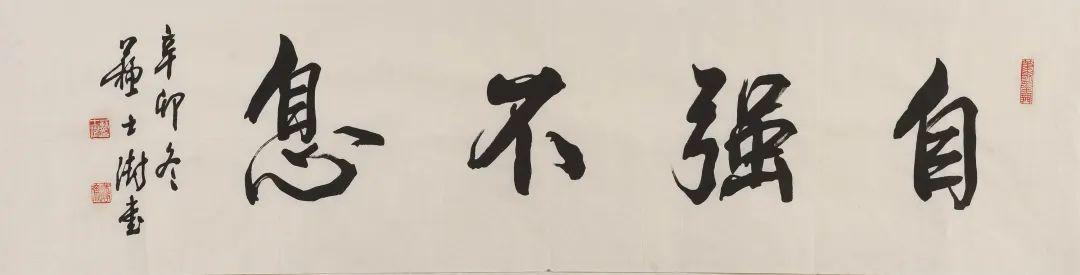 自强不息
辛卯冬
苏士澍书